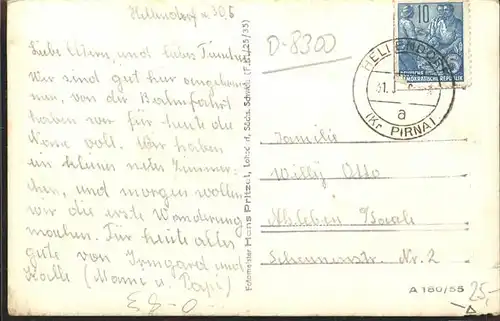 Hellendorf d. 30.6
Liebe Eltern, und liebes Timchen
Wir sind gut hier angekommen
men, von der Bahnfahrt
haben wir für heute die
Nase voll. Wir haben
ein kleines nettes Zimmer-
chen, und morgen wollen
wir die erste Wanderung
machen. Für heute alles
gute von Irmgard und
Kalle (Mami u. Papi)
Fotomeister Hans Pritzel, Lohsdorf, Sächs. Schweiz (F.B./25/35)
O-8300
10
DEUTSCHE DEMOKRATISCHE REPUBLIK
HELLENDORF
a
(Kr PIRNA)
Familie
Willy Otto
Alsleben/Saale
Scheunenstr. Nr. 2
A 180/55
25,-